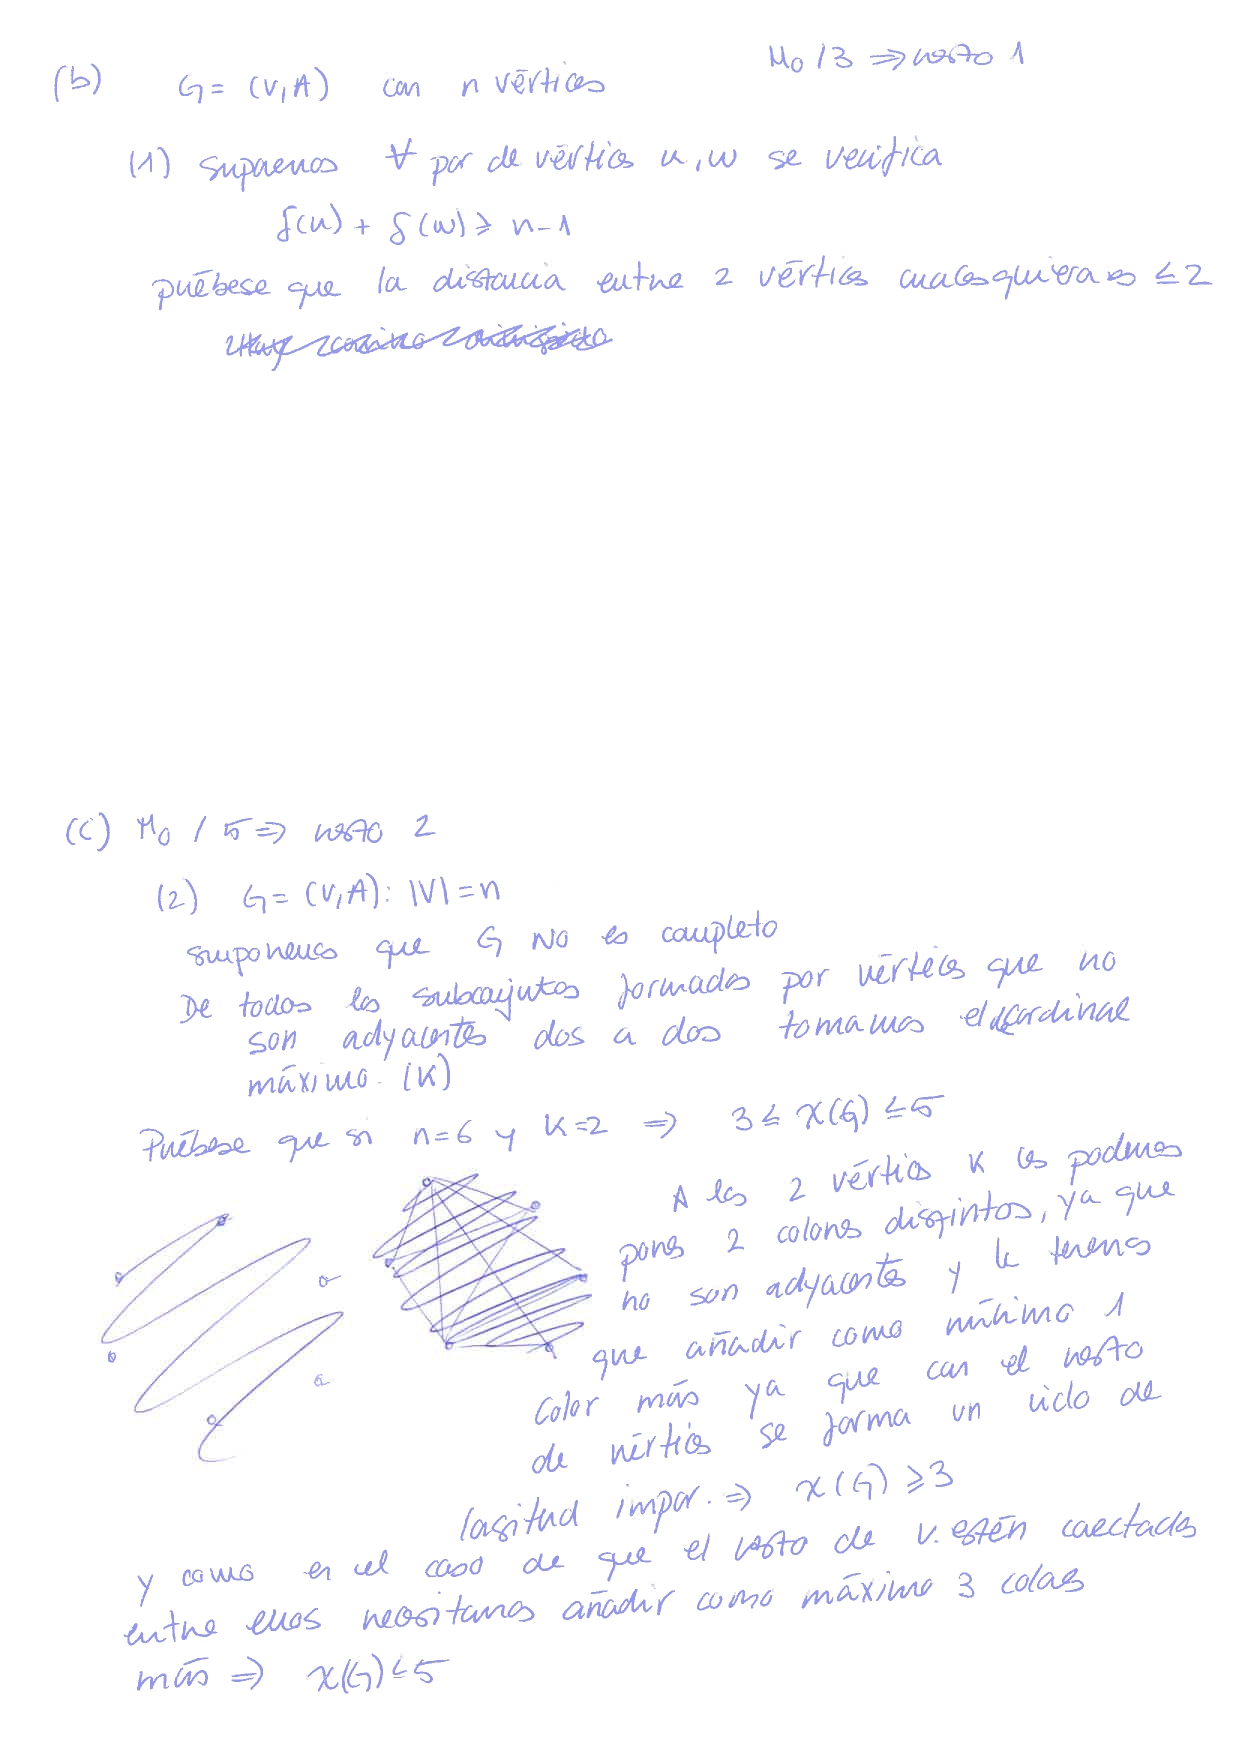 M₀ / 3 ⇒ resto 1
(b) G = (V, A) con n vértices
(1) Suponemos ∀ par de vértices u, w se verifica
δ(u) + δ(w) ≥ n-1
pruébese que la distancia entre 2 vértices cualesquiera es ≤ 2
(c) M₀ / 5 ⇒ resto 2
(2) G = (V, A): |V| = n
suponemos que G NO es completo
De todos los subconjuntos formados por vértices que no
son adyacentes dos a dos tomamos el cardinal
máximo. (K)
Pruébese que si n=6 y K=2 ⇒ 3 ≤ χ(G) ≤ 5
A los 2 vértices K les podemos
poner 2 colores distintos, ya que
no son adyacentes y le tenemos
que añadir como mínimo 1
color más ya que con el resto
de vértices se forma un ciclo de
longitud impar. ⇒ χ(G) ≥ 3
y como en el caso de que el resto de v. estén conectados
entre ellos necesitamos añadir como máximo 3 colores
más ⇒ χ(G) ≤ 5